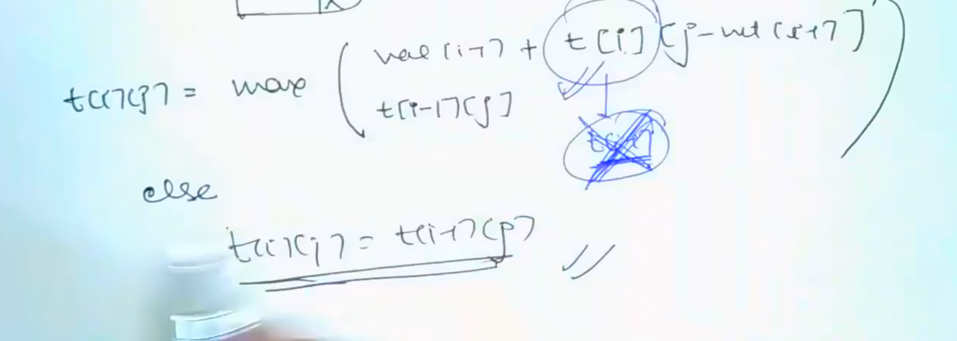 t[i][j] = max ( val[i-1] + t[i][j-wt[i-1]]
t[i-1][j] )
else
t[i][j] = t[i-1][j]